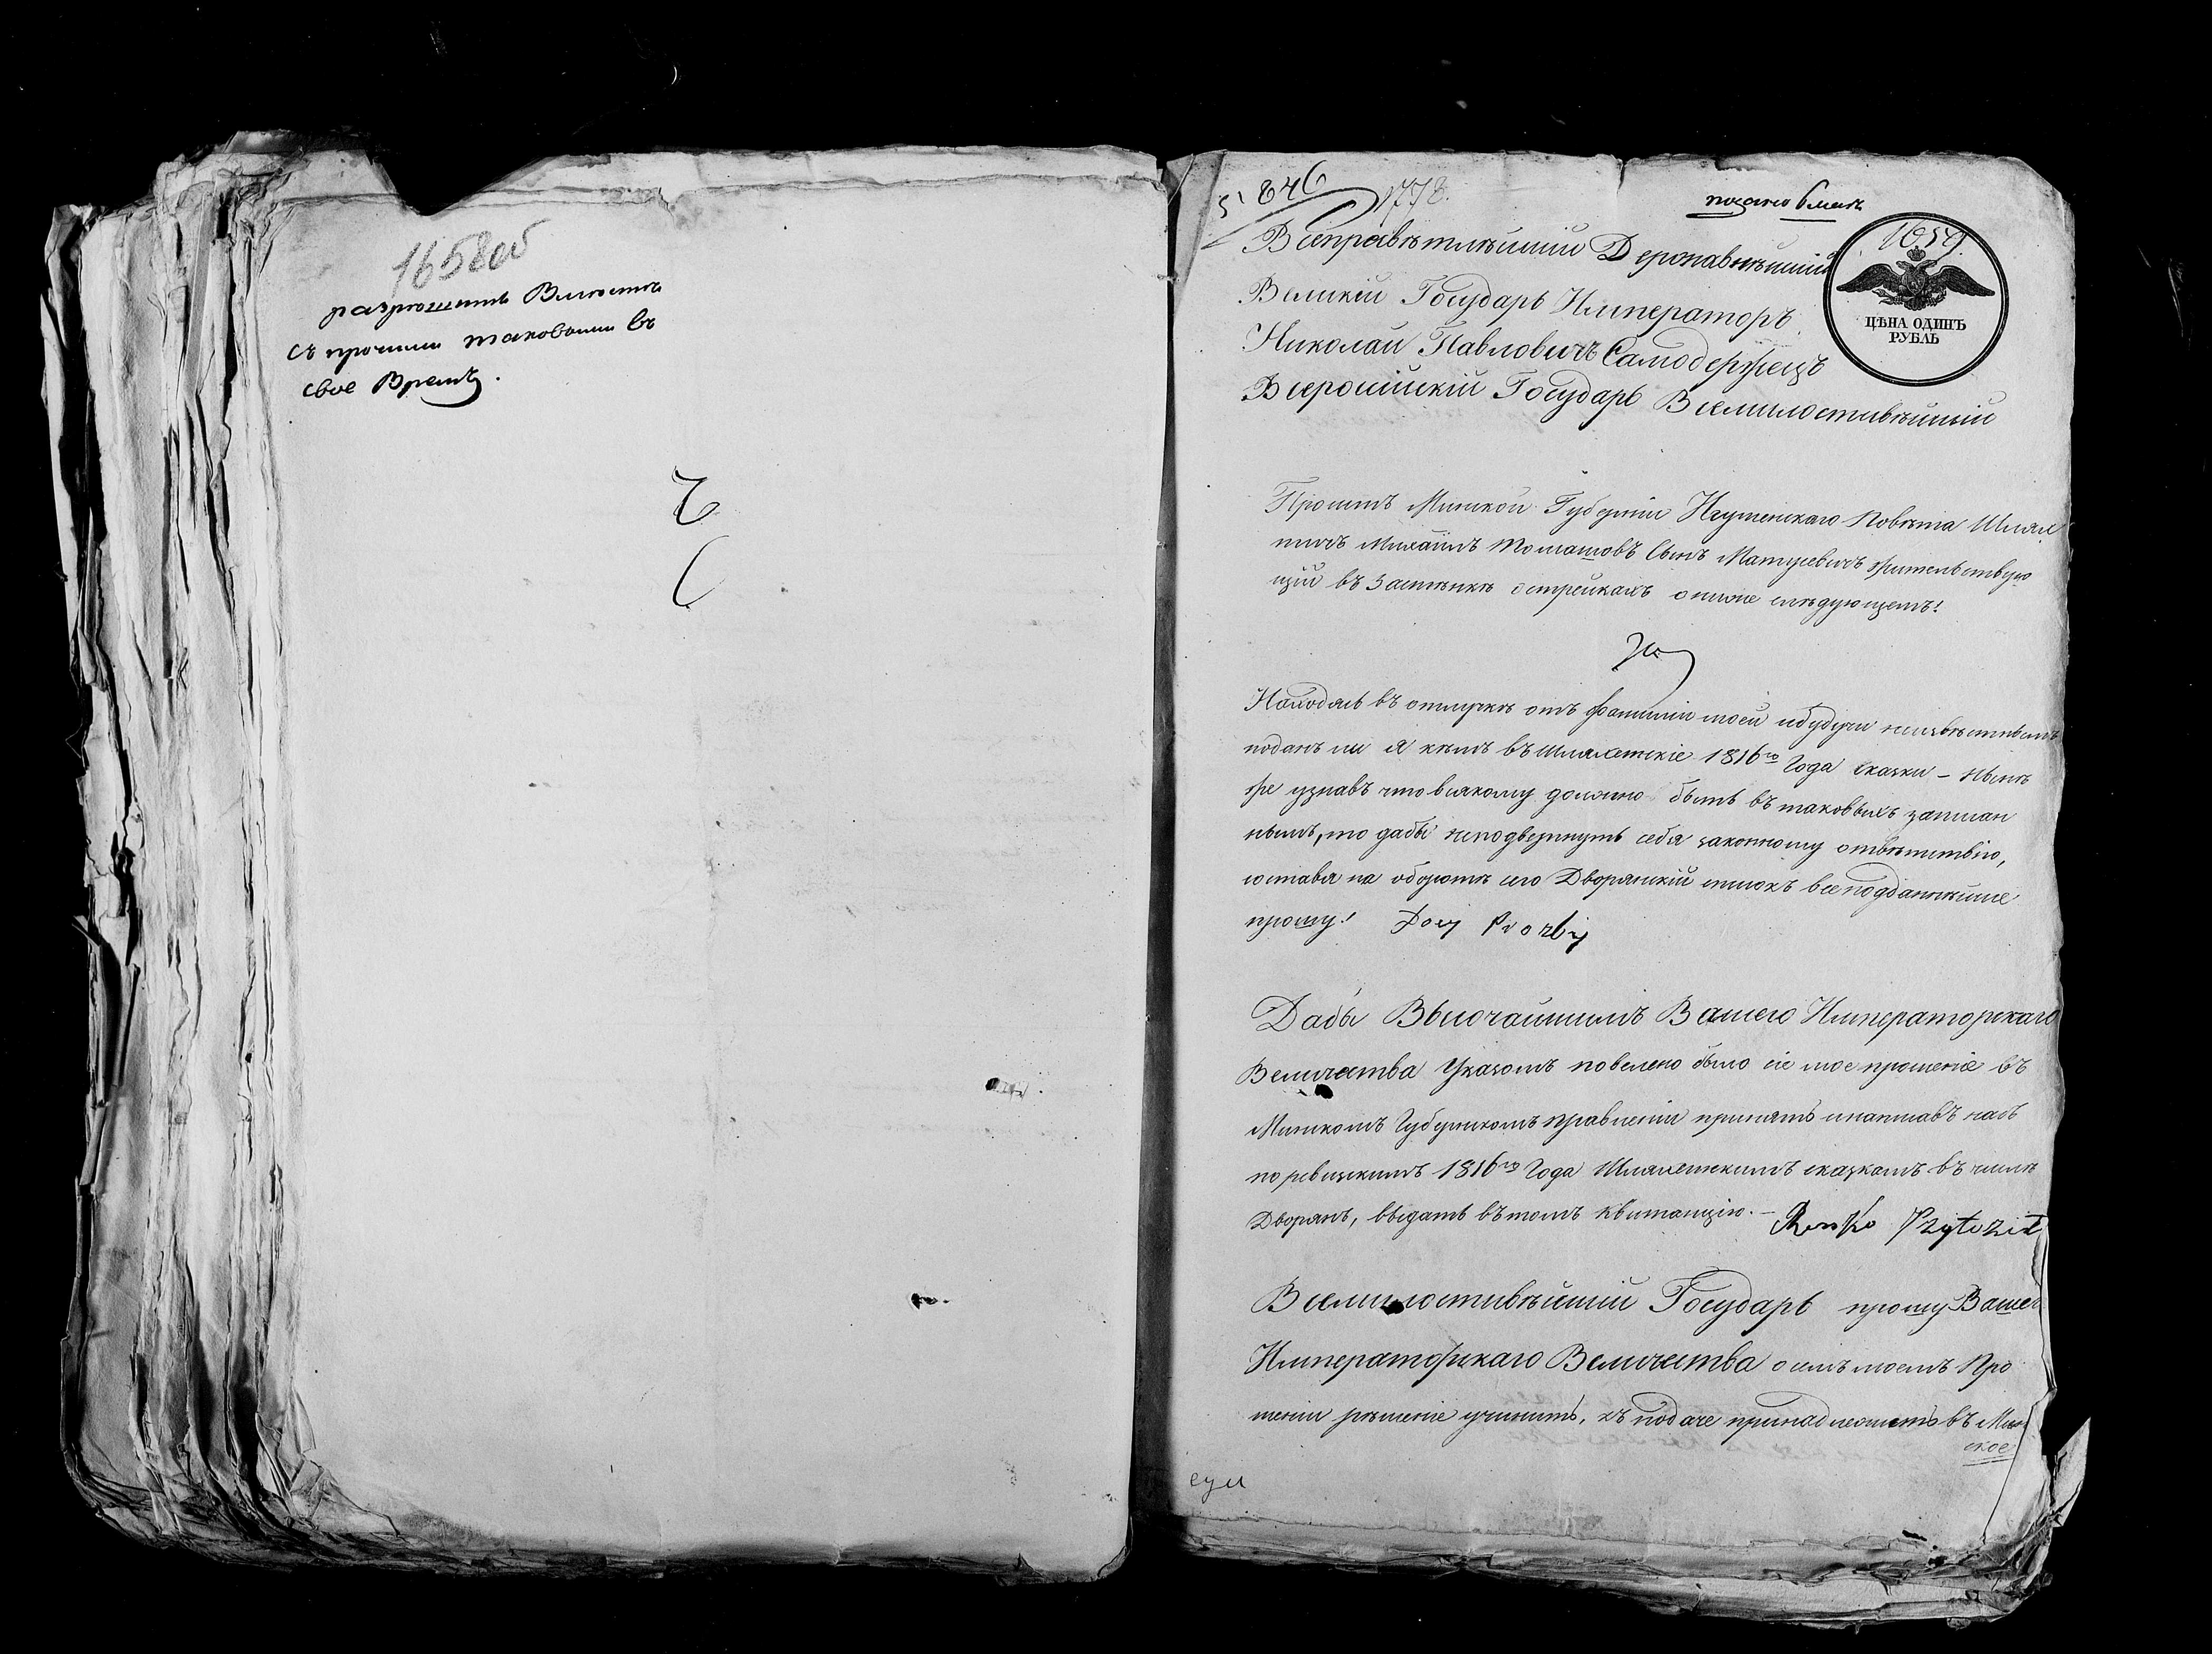 1658 об
разрешить вместе
съ прочими таковыми въ
свое Время.
5846
1778.
подано 6 мая
1659.
Всепресвѣтлѣйшій Державнѣйшій
Великій Государь Императоръ
Николай Павловичъ Самодержецъ
Всеросійскій Государь Всемилостивѣйшій
ЦѢНА ОДИНЪ
РУБЛЬ
Проситъ Минской Губерніи Игуменскаго Повѣта Шлях
тичъ Михаилъ Томашовъ Сынъ Матусевичъ жительствую
щій въ Застѣнкѣ острейкахъ о ниже слѣдующемъ!
Находясь въ отлучкѣ отъ фамиліи моей ибудучи неизвѣстнымъ
поданъ ли я кѣмъ въ шляхетскіе 1816го Года сказки – нынѣ
же узнавъ что всякому должно быть въ таковыхъ записан
нымъ, то дабы неподвергнуть себя законному отвѣтствію,
составя на оборотѣ сего Дворянскій списокъ всеподданнѣйше
прошу!
Дабы Высочайшимъ Вашего Императорскаго
Величества Указомъ повелено было сіе мое прошеніе въ
Минскомъ Губернскомъ правленіи принять инаписавъ насъ
по ревизскимъ 1816го Года Шляхетскимъ сказкамъ въ числѣ
Дворянъ, выдать вътомъ квитанцію. –
Всемилостивѣйшій Государь прошу Вашего
Императорскаго Величества о семъ моемъ Про
шеніи рѣшеніе учинить, къ подаче принадлежитъ въ Мин
ское